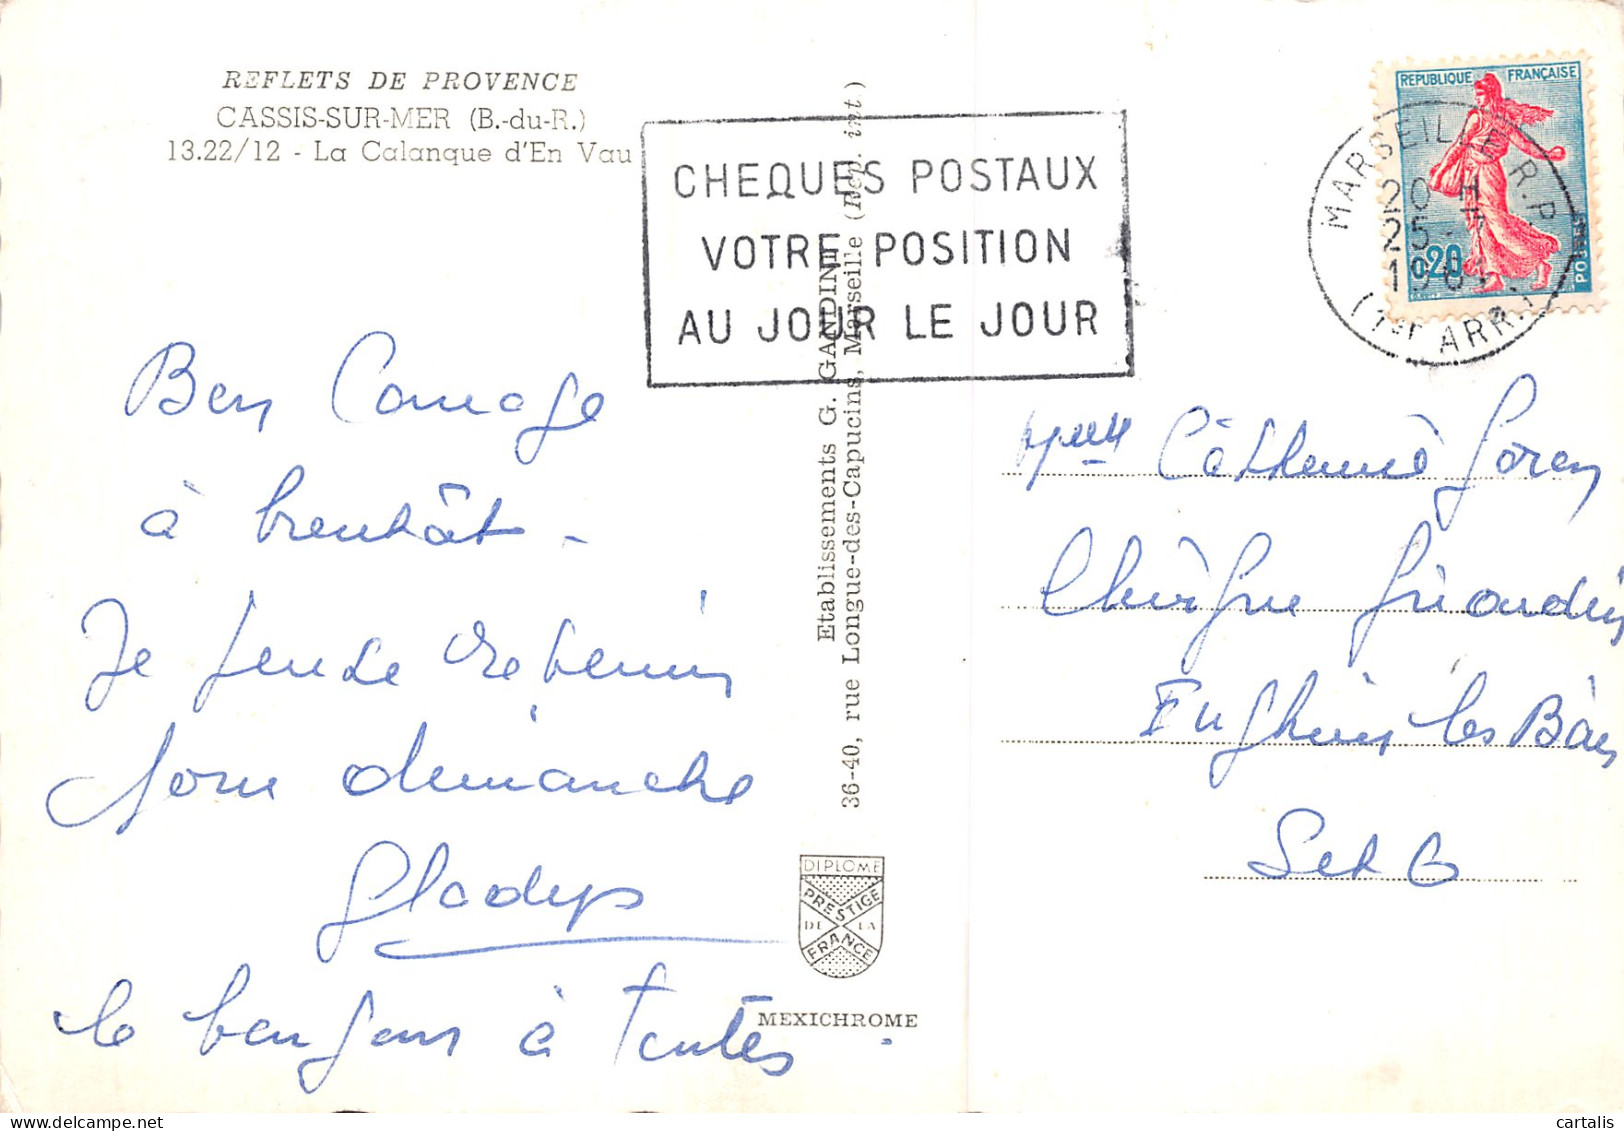 REFLETS DE PROVENCE
CASSIS-SUR-MER (B.-du-R.)
13.22/12 - La Calanque d'En Vau
CHEQUES POSTAUX
VOTRE POSITION
AU JOUR LE JOUR
REPUBLIQUE FRANÇAISE
0,20
POSTES
MARSEILLE R.P.
20 H
25 - 7
1961
(1er ARR.)
Bon Courage
à bientôt -
Je pense revenir
pour dimanche
Gladys
le bonjour à toutes
Etablissements G. GANDINI
36-40, rue Longue-des-Capucins, Marseille (Rep. int)
DIPLOME
PRESTIGE
DE LA
FRANCE
MEXICHROME
Melle Catherine
Enghien les Bains
S et O
cartalis